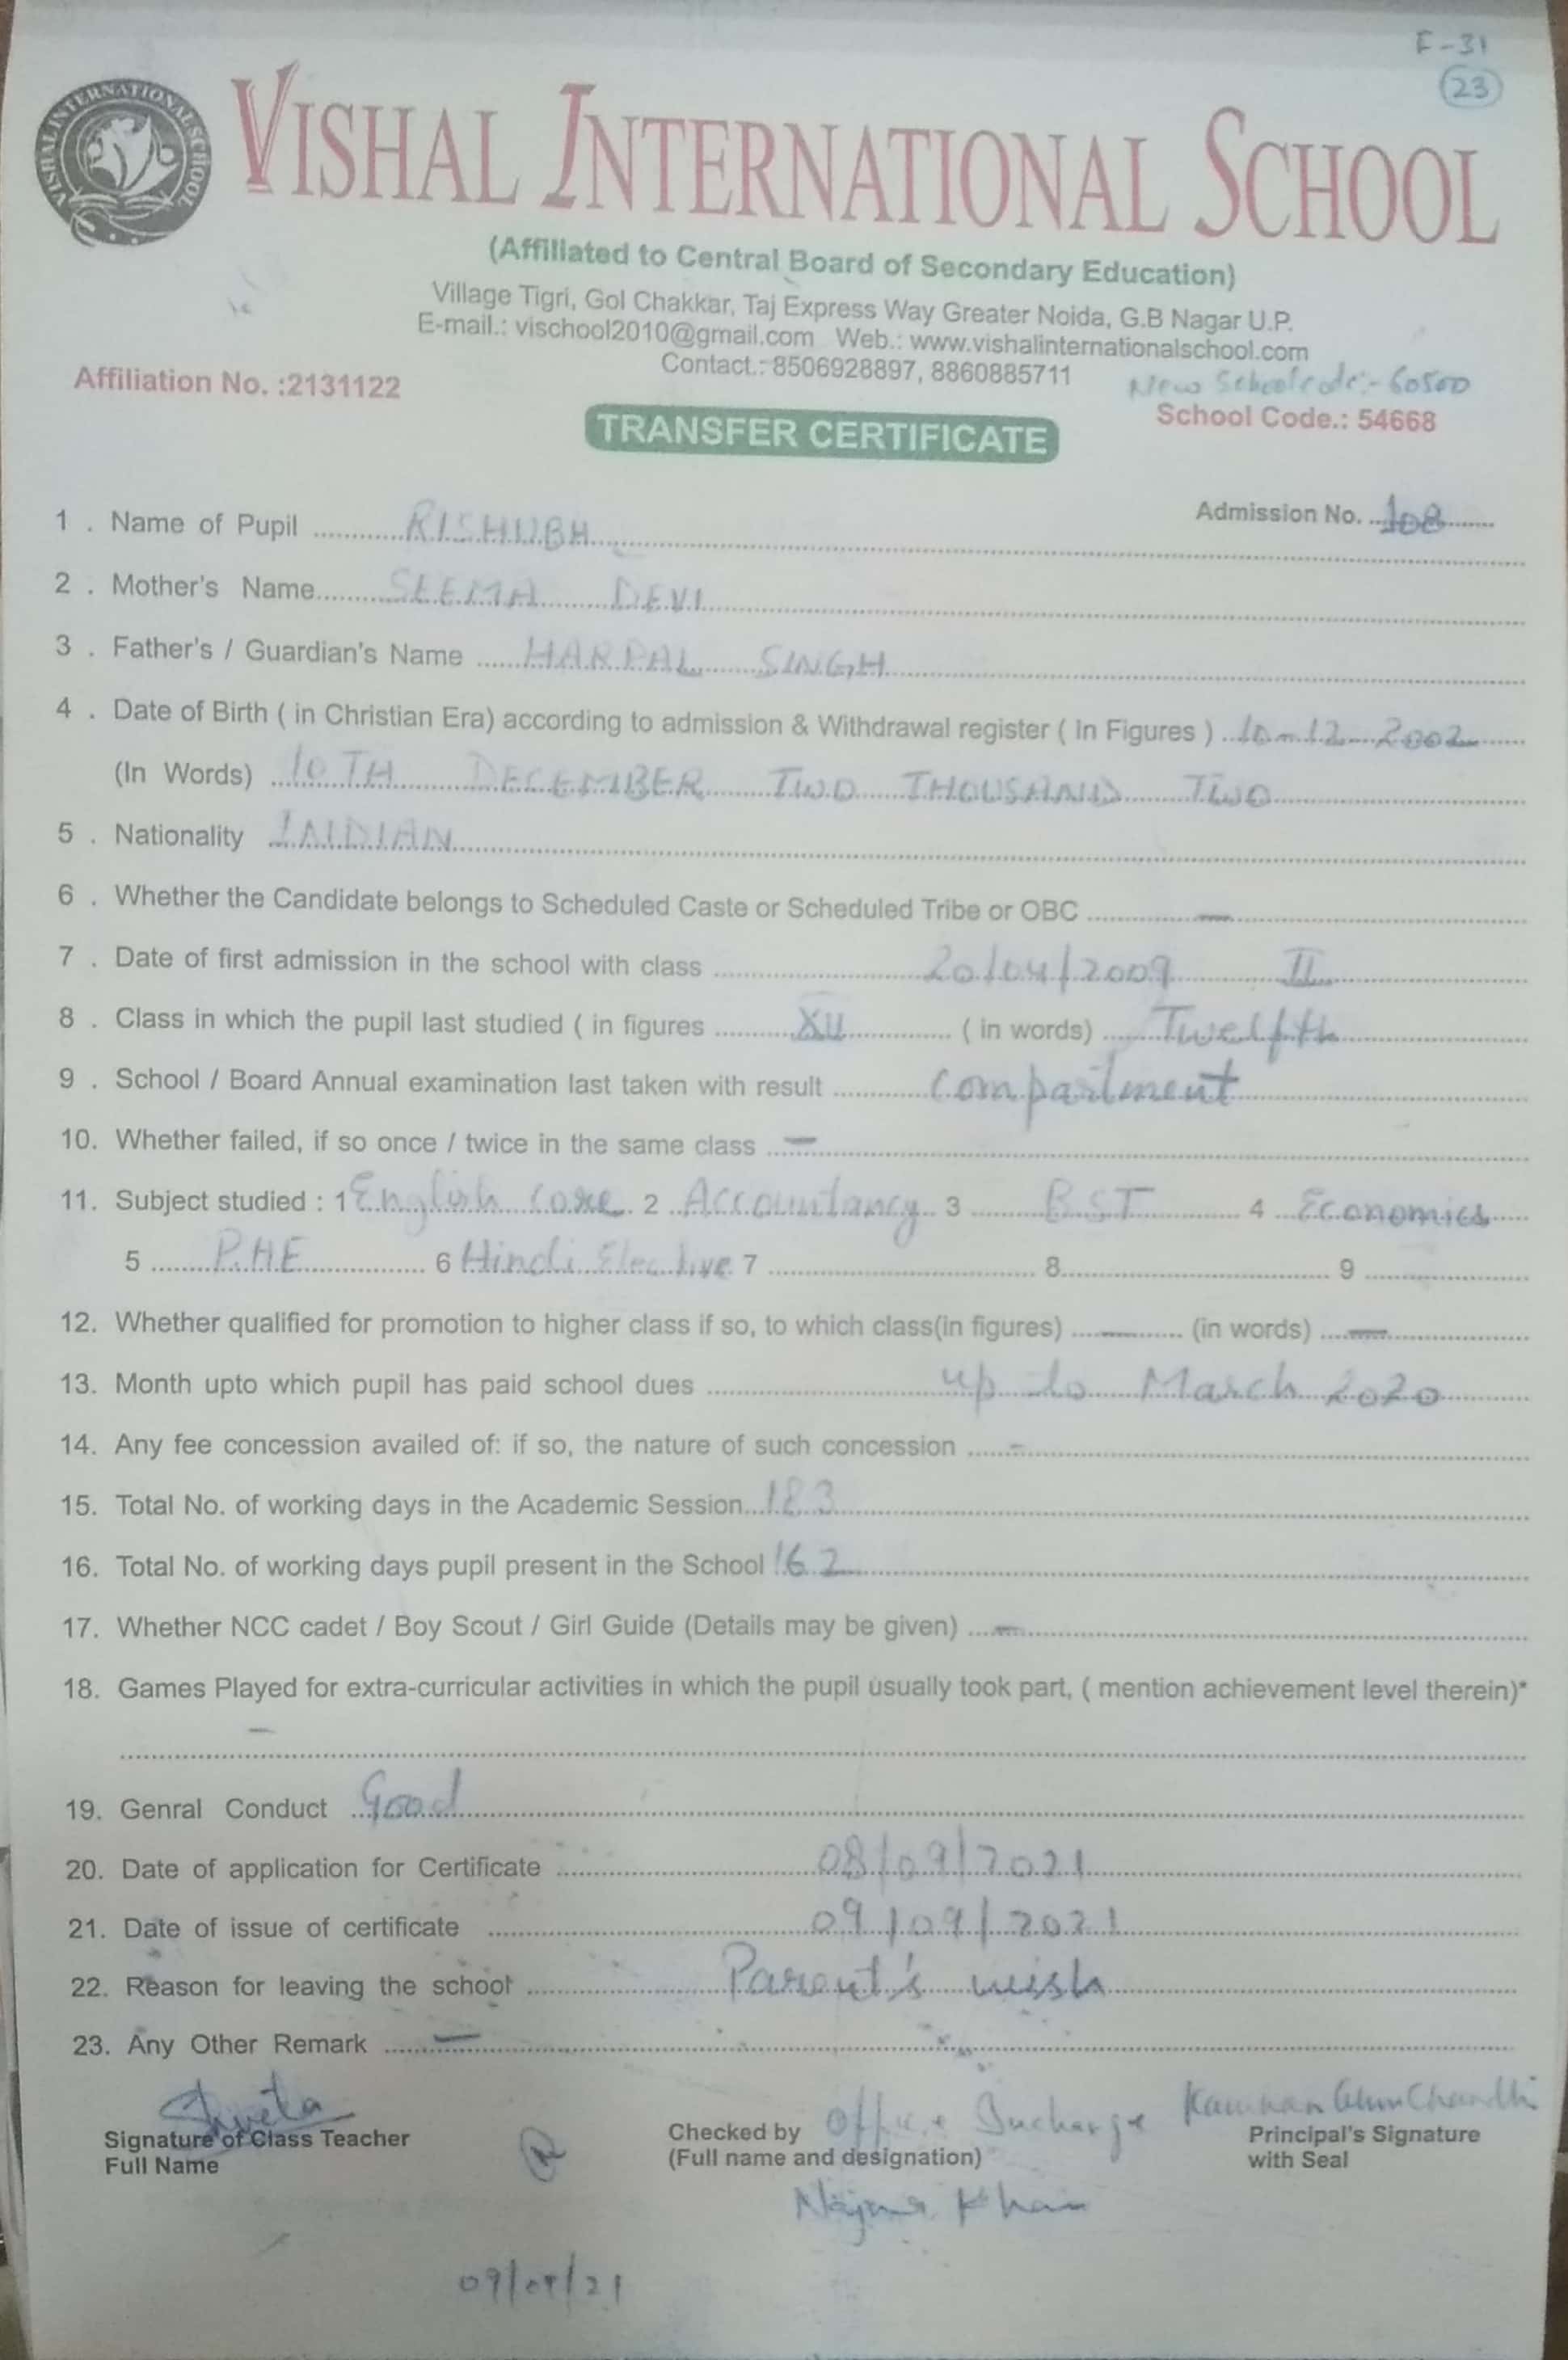 F-31
23
VISHAL INTERNATIONAL SCHOOL
VISHAL INTERNATIONAL SCHOOL
(Affiliated to Central Board of Secondary Education)
Village Tigri, Gol Chakkar, Taj Express Way Greater Noida, G.B Nagar U.P.
E-mail.: vischool2010@gmail.com Web.: www.vishalinternationalschool.com
Contact.: 8506928897, 8860885711
New School code:- 60500
Affiliation No. :2131122
School Code.: 54668
TRANSFER CERTIFICATE
Admission No. 108
1 . Name of Pupil RISHUBH
2 . Mother's Name SEEMA DEVI
3 . Father's / Guardian's Name HARPAL SINGH
4 . Date of Birth ( in Christian Era) according to admission & Withdrawal register ( In Figures ) 10-12-2002
(In Words) 10TH DECEMBER TWO THOUSAND TWO
5 . Nationality INDIAN
6 . Whether the Candidate belongs to Scheduled Caste or Scheduled Tribe or OBC —
7 . Date of first admission in the school with class 20/04/2009 II
8 . Class in which the pupil last studied ( in figures XII ( in words) Twelfth
9 . School / Board Annual examination last taken with result Compartment
10. Whether failed, if so once / twice in the same class —
11. Subject studied : 1 English core 2 Accountancy 3 B.ST 4 Economics
5 P.HE 6 Hindi Elective 7 8 9
12. Whether qualified for promotion to higher class if so, to which class(in figures) — (in words) —
13. Month upto which pupil has paid school dues up to March 2020
14. Any fee concession availed of: if so, the nature of such concession -
15. Total No. of working days in the Academic Session 183
16. Total No. of working days pupil present in the School 162
17. Whether NCC cadet / Boy Scout / Girl Guide (Details may be given) —
18. Games Played for extra-curricular activities in which the pupil usually took part, ( mention achievement level therein)*
—
19. Genral Conduct Good
20. Date of application for Certificate 08/09/2021
21. Date of issue of certificate 09/09/2021
22. Reason for leaving the school Parent's wish
23. Any Other Remark —
Shweta
Signature of Class Teacher
Full Name
Checked by Office Incharge
(Full name and designation)
Najma Khan
Principal's Signature
with Seal
09/09/21